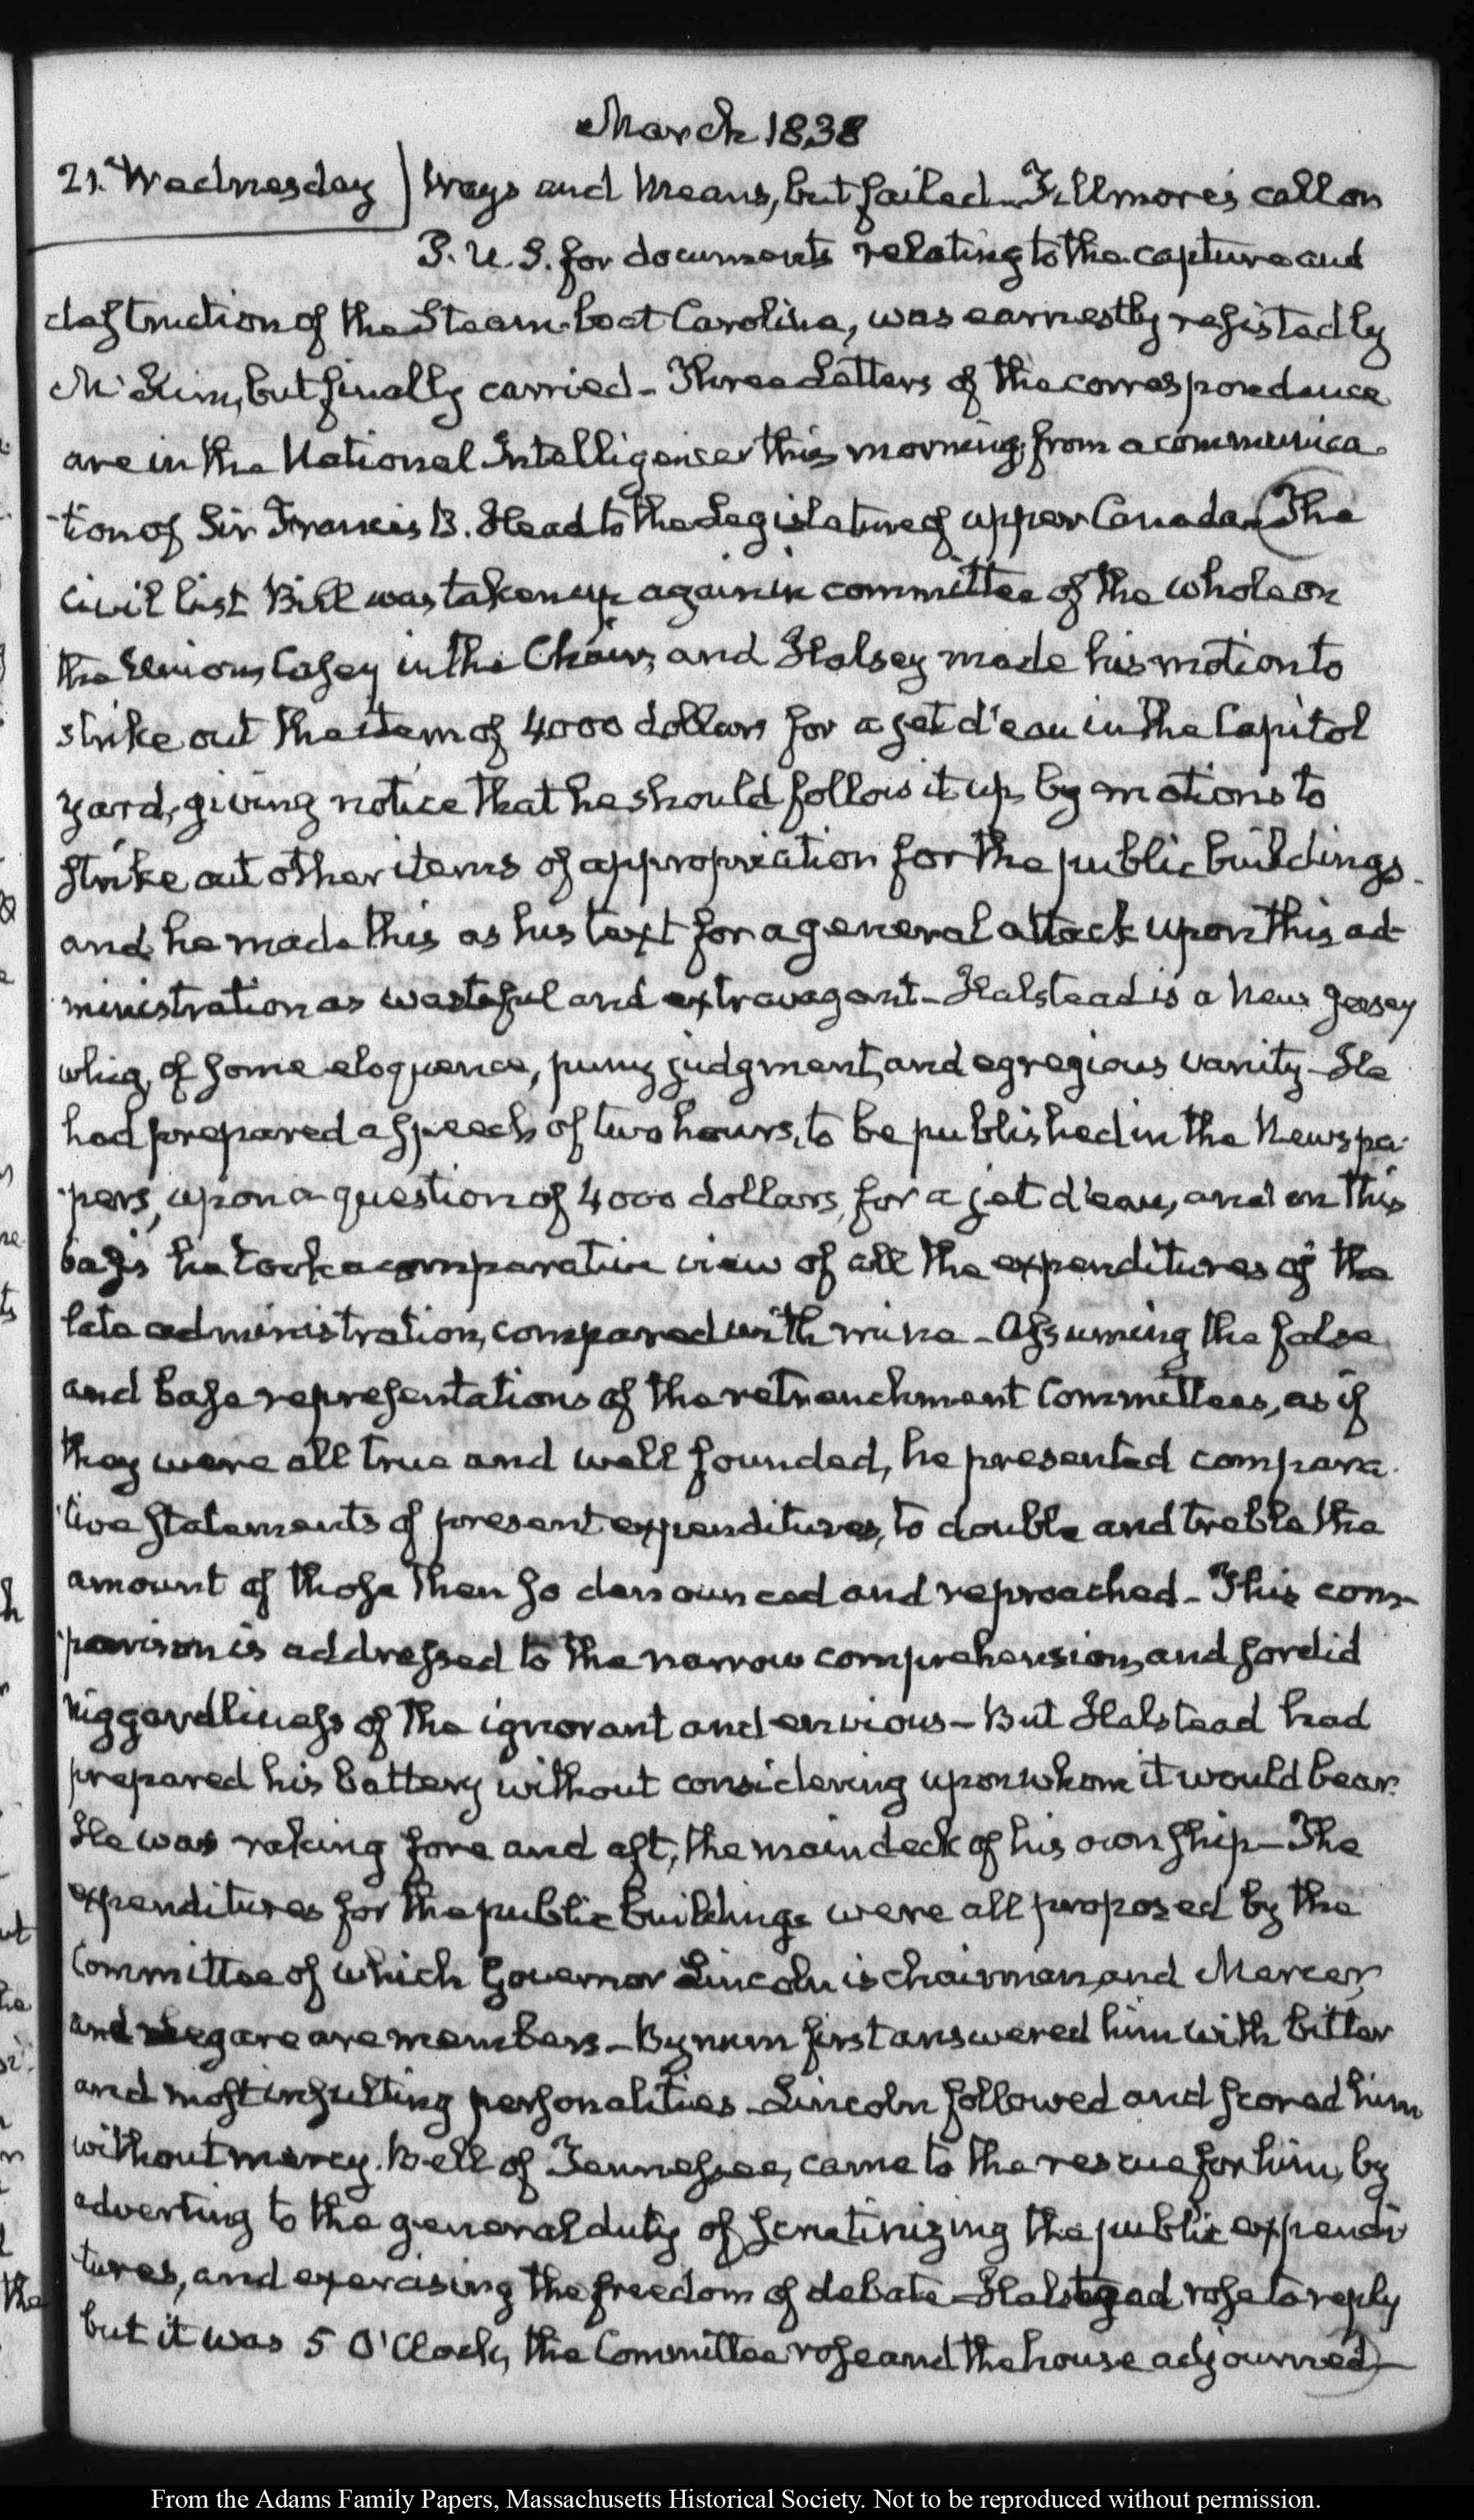 March 1838
21. Wednesday) Ways and Means, but failed – Fillmore's call on
P. U. S. for documents relating to the capture and
destruction of the Steam-boat Carolina, was earnestly resisted by
McKim, but finally carried – Three Letters of the correspondence
are in the National Intelligencer this morning, from a communica-
tion of Sir Francis B. Head to the Legislature of upper Canada – (The
Civil list Bill was taken up again in committee of the whole on
the Union, Casey in the Chair, and Halsey made his motion to
strike out the item of 4000 dollars for a jet d'eau in the Capitol
yard, giving notice that he should follow it up, by motions to
strike out other items of appropriation for the public buildings.
and he made this as his text for a general attack upon this ad-
ministration as wasteful and extravagant – Halstead is a New Jersey
whig, of some eloquence, puny judgment, and egregious vanity – He
had prepared a speech of two hours, to be published in the Newspa-
pers, upon a question of 4000 dollars, for a jet d'eau, and on this
basis he took a comparative view of all the expenditures of the
late administration, compared with mine – Assuming the false
and base representations of the retrenchment Committees, as if
they were all true and well founded, he presented compara-
tive statements of present expenditures, to double and treble the
amount of those then so denounced and reproached – This com-
parison is addressed to the narrow comprehension, and sordid
niggardliness of the ignorant and envious – But Halstead had
prepared his battery without considering upon whom it would bear.
He was raking fore and aft, the main deck of his own ship – The
expenditures for the public buildings were all proposed by the
Committee of which Governor Lincoln is chairman, and Mercer,
and Legare are members – Bynum first answered him with bitter
and most insulting personalities – Lincoln followed and scored him
without mercy. Bell of Tennessee, came to the rescue for him, by
adverting to the general duty of scrutinizing the public expendi-
tures, and exercising the freedom of debate – Halstead rose to reply
but it was 5 O'Clock, the Committee rose and the house adjourned)–
From the Adams Family Papers, Massachusetts Historical Society. Not to be reproduced without permission.